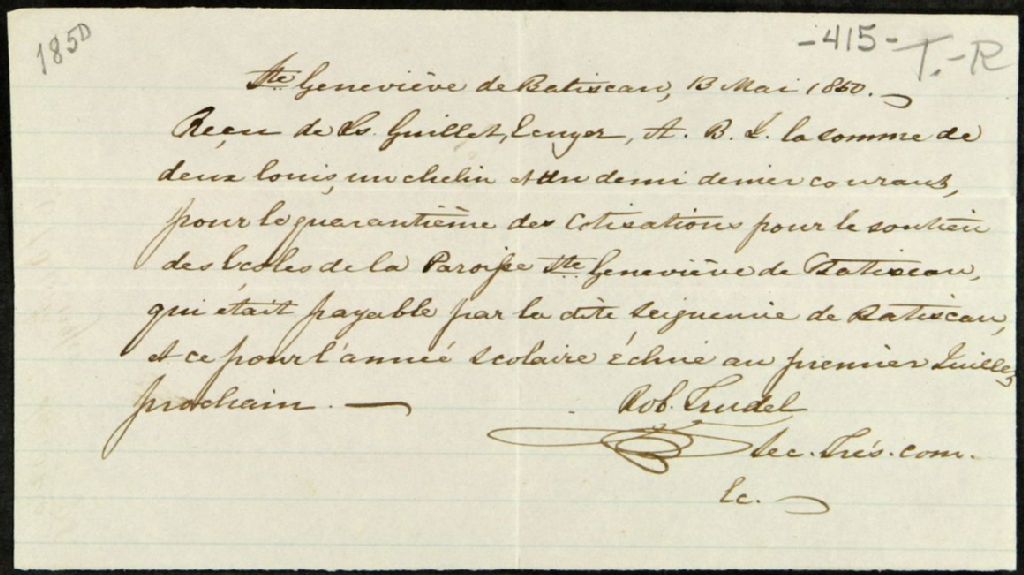 1850
-415- T.-R
Ste Geneviève de Batiscan, 13 Mai 1850.
Reçu de Ls. Guillet, Ecuyer, A. B. S. la somme de
deux louis, un chelin et un demi denier courant,
pour le quarantième des Cotisations pour le soutien
des Ecoles de la Paroisse Ste Geneviève de Batiscan,
qui était payable par la dite Seigneurie de Batiscan,
et ce pour l'année scolaire échue au premier Juillet
prochain.
Rob. Trudel
Sec. Trés. com.
Ec.